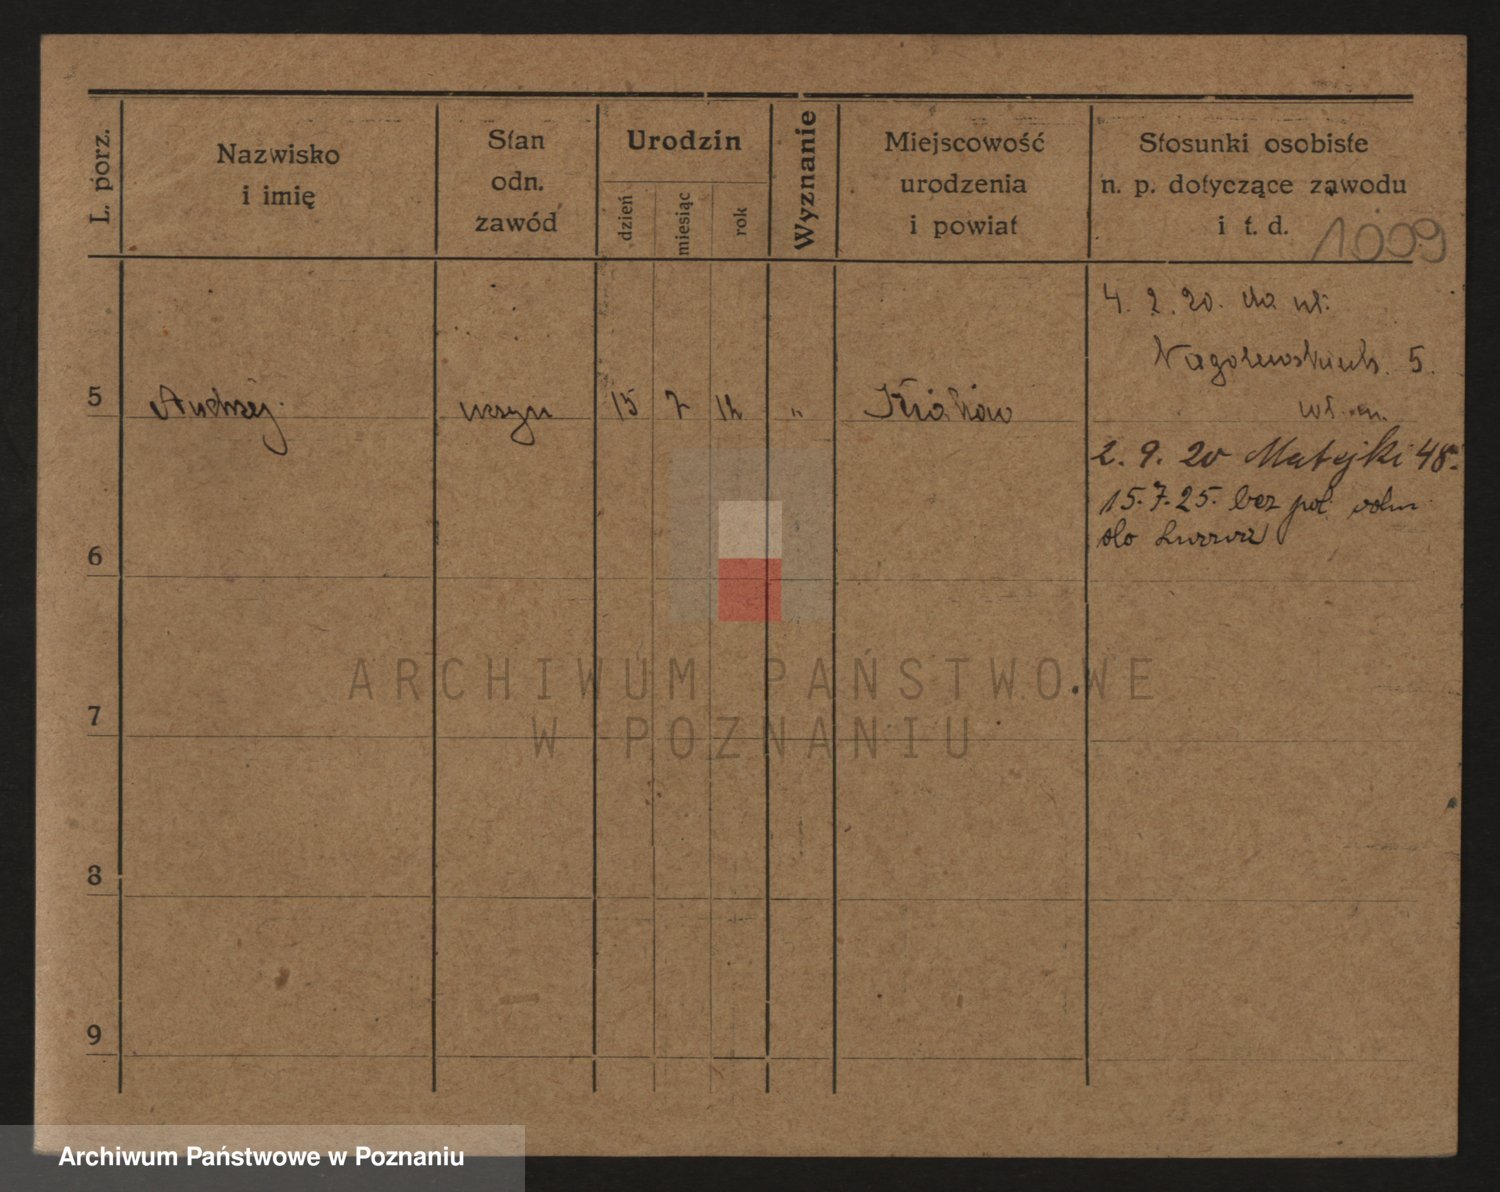 L. porz.
Nazwisko
i imię
Stan
odn.
zawód
Urodzin
dzień
miesiąc
rok
Wyznanie
Miejscowość
urodzenia
i powiat
Stosunki osobiste
n. p. dotyczące zawodu
i t. d.
1009
4. 2. 20. na ul:
5.
5 Andrzej 15 7 12 " Kraków
2. 9. 20 Matejki 48.
15.7.25. bez pol.
do
6
7
8
9
ARCHIWUM PAŃSTWOWE
W POZNANIU
Archiwum Państwowe w Poznaniu